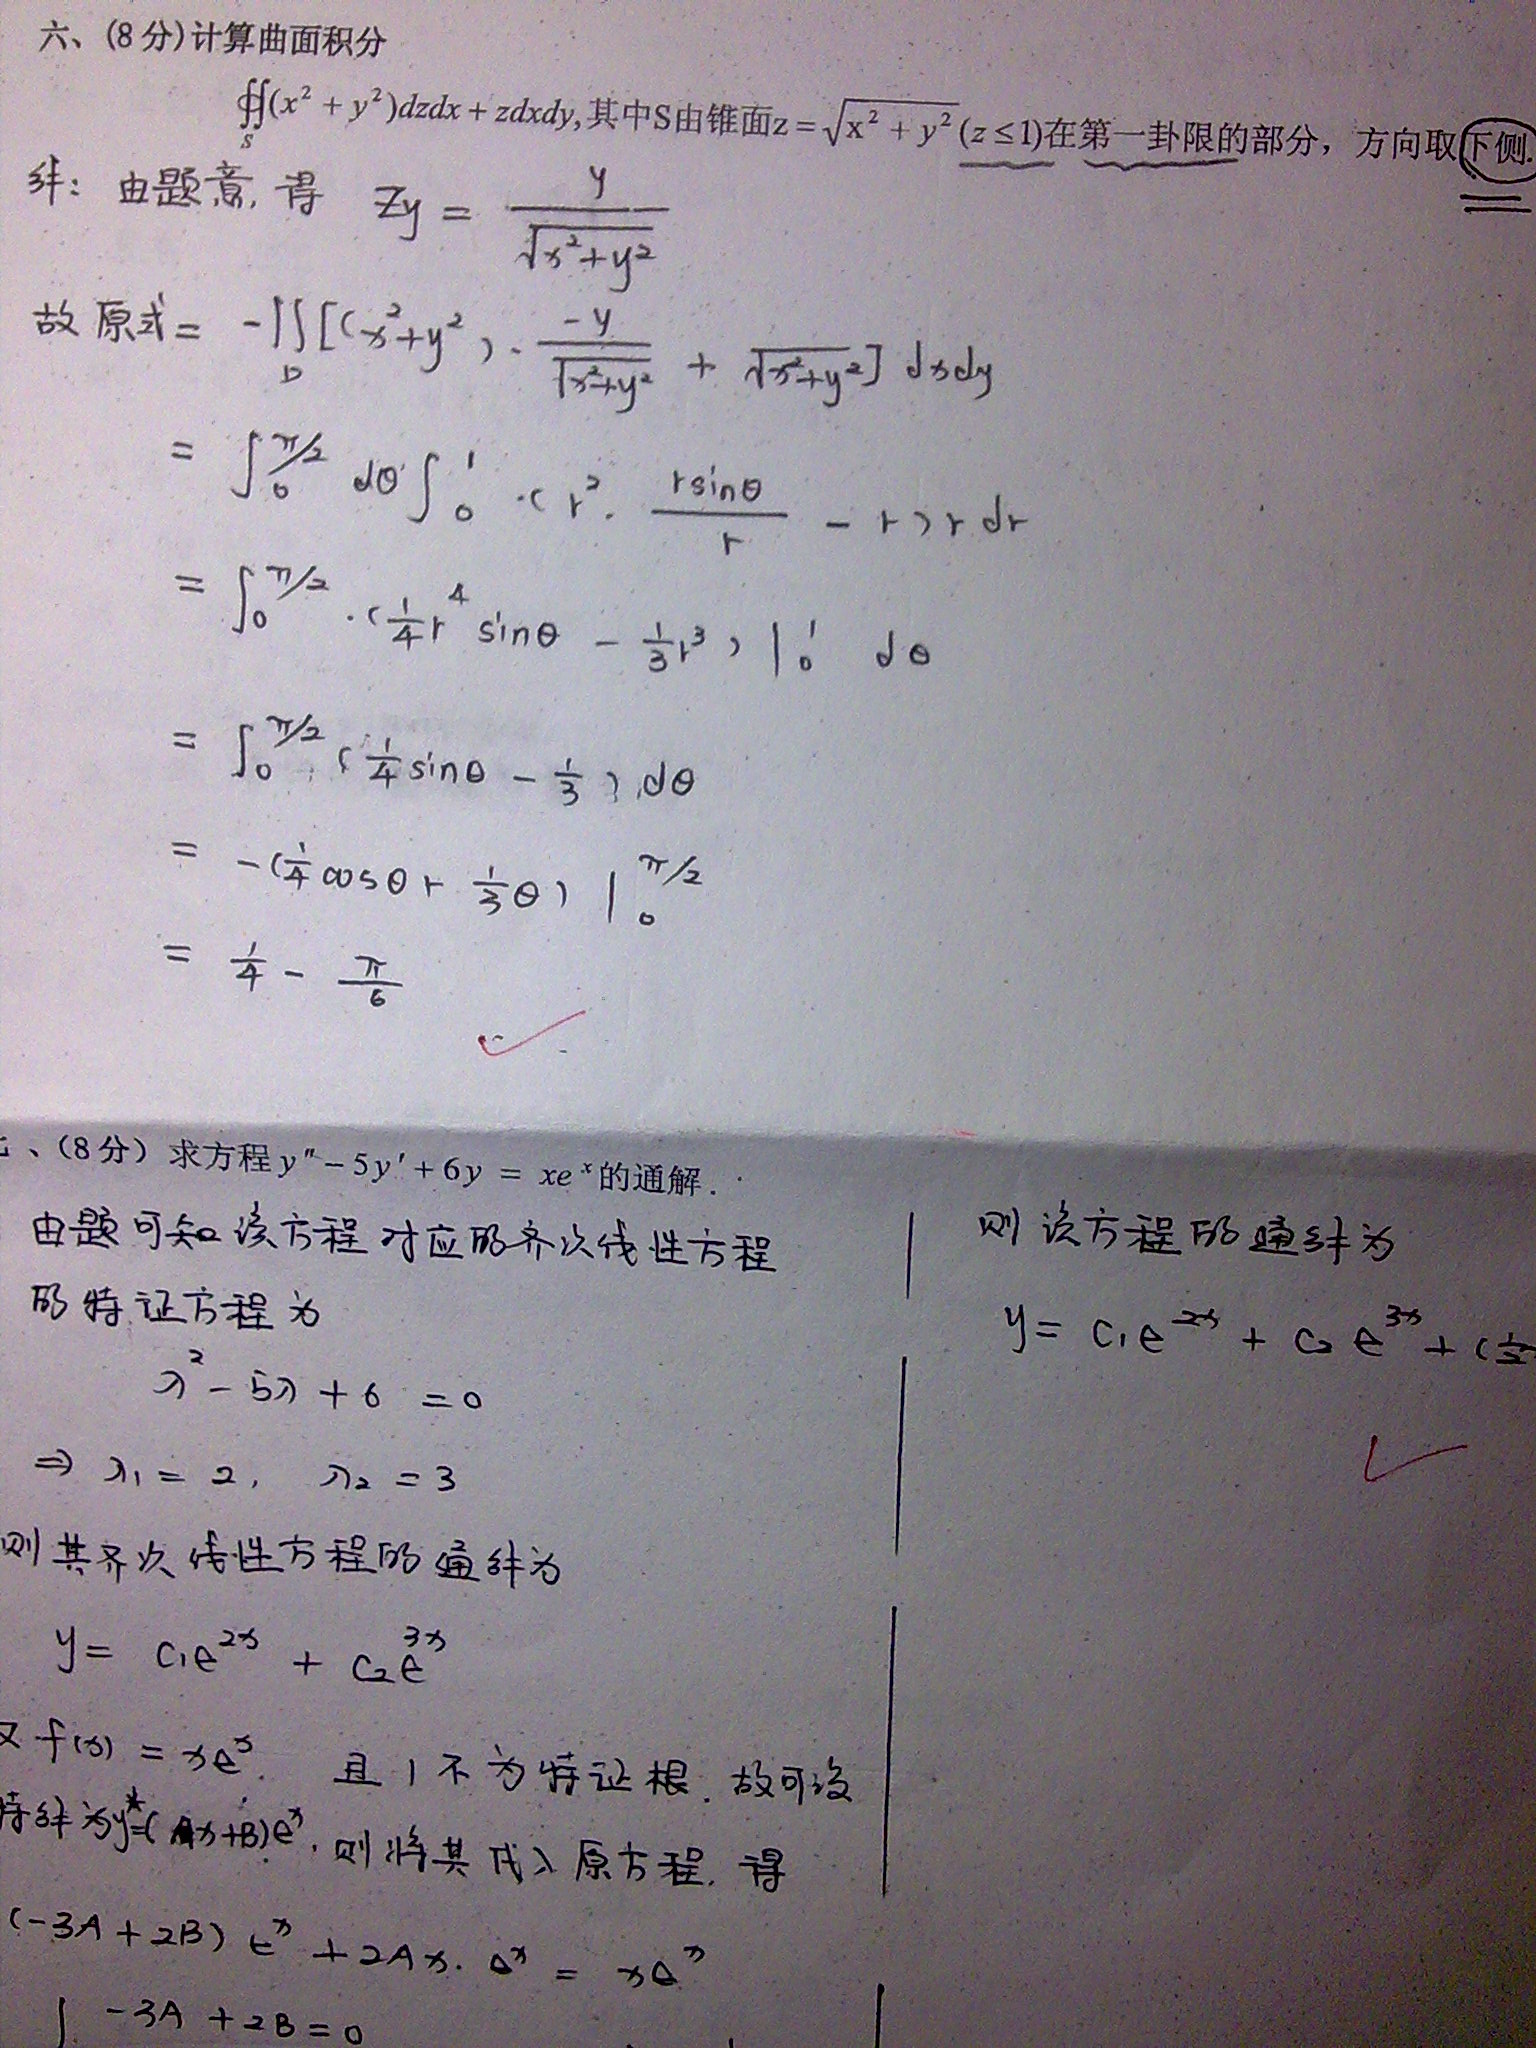 六、(8分)计算曲面积分
∯_S (x² + y²)dzdx + zdxdy, 其中S由锥面z = √(x² + y²) (z ≤ 1)在第一卦限的部分，方向取下侧.
解: 由题意, 得 Zy = y/√(x²+y²)
故原式 = -∬_D [(x²+y²)·(-y)/√(x²+y²) + √(x²+y²)] dxdy
= ∫₀^(π/2) dθ ∫₀¹ ·(r²·(rsinθ)/r - r) r dr
= ∫₀^(π/2) ·(1/4 r⁴ sinθ - 1/3 r³) |₀¹ dθ
= ∫₀^(π/2) (1/4 sinθ - 1/3) dθ
= -(1/4 cosθ + 1/3 θ) |₀^(π/2)
= 1/4 - π/6
、(8分) 求方程 y″ - 5y′ + 6y = xeˣ 的通解.
由题可知该方程对应的齐次线性方程
的特证方程为
λ² - 5λ + 6 = 0
⇒ λ₁ = 2, λ₂ = 3
则其齐次线性方程的通解为
y = c₁e^(2x) + c₂e^(3x)
又 f(x) = xeˣ. 且1不为特证根. 故可设
特解为y* = (Ax+B)eˣ, 则将其代入原方程, 得
(-3A + 2B) eˣ + 2Ax·eˣ = xeˣ
-3A + 2B = 0
则该方程的通解为
y = c₁e^(2x) + c₂e^(3x) + (1/2